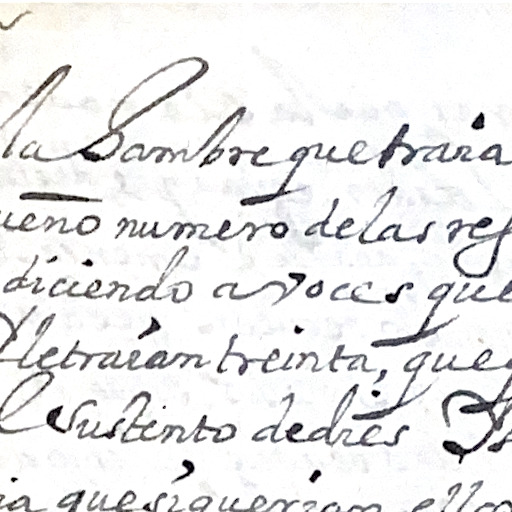 la hambre que traia
ueno numero de las res
diciendo a voces que
le traian treinta, que
l sustento de dies
ia que si querian ello